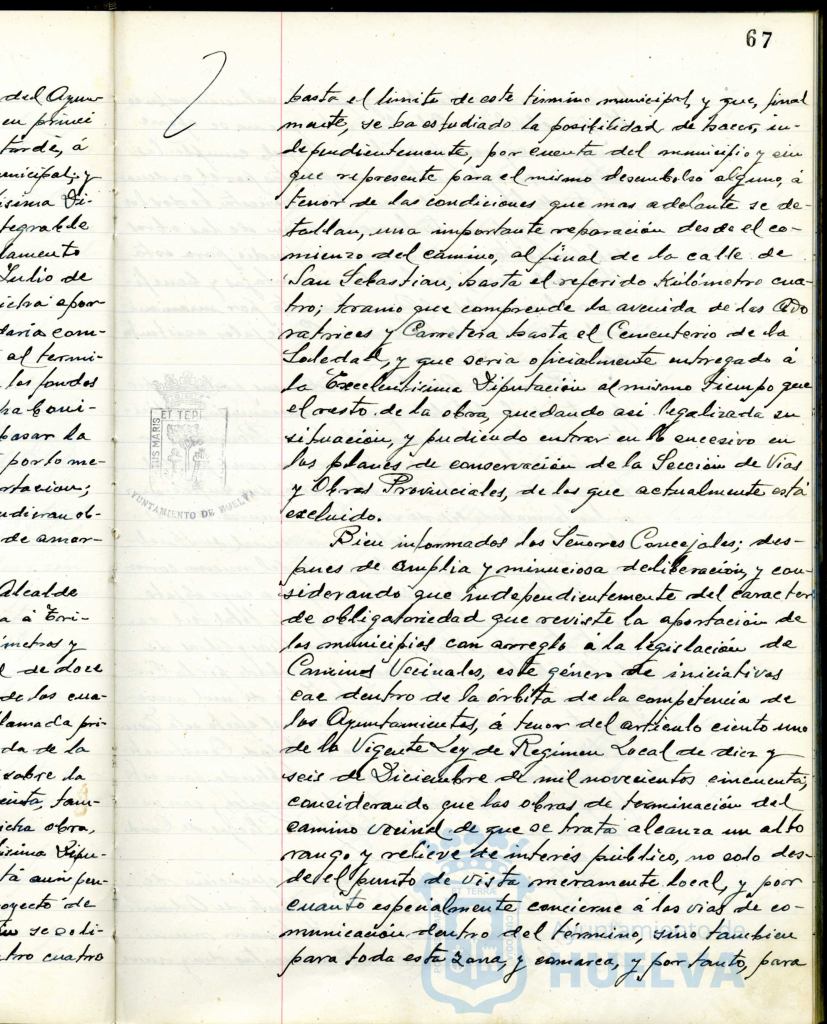 67
del Ayun-
en princi
tarde, á
unicipal; y
ísima Di-
tegral de
lamento
Julio de
icha apor-
daría com-
al termi-
los fondos
pasar la
por lo me-
ortacion;
udieran ob-
de amor-
Alcalde
a á Tri-
ímetros y
l de doce
de los cua-
llamada pri-
da de la
sobre la
cinta, tam-
icha obra,
ísima Dipu-
tá aun pen-
royecto de
se soli-
tro cuatro
hasta el limite de este termino municipal, y que, final
mente, se ha estudiado la posibilidad de hacer, in-
dependientemente, por cuenta del municipio y sin
que represente para el mismo desembolso alguno, á
tenor de las condiciones que mas adelante se de-
tallan, una importante reparación desde el co-
mienzo del camino, al final de la calle de
San Sebastian, hasta el referido Kilómetro cua-
tro; tramo que comprende la avenida de las Ado
ratrices y Carretera hasta el Cementerio de la
Soledad, y que seria oficialmente entregado á
la Excelentisima Diputación al mismo tiempo que
el resto de la obra, quedando asi legalizada su
situación, y pudiendo entrar en lo sucesivo en
los planes de conservación de la Sección de Vias
y Obras Provinciales, de los que actualmente está
excluido.
Bien informados los Señores Concejales; des-
pues de amplia y minuciosa deliberación, y con-
siderando que independientemente del caracter
de obligatoriedad que reviste la aportación de
los municipios con arreglo á la legislación de
Caminos Vecinales, este género de iniciativas
cae dentro de la órbita de la competencia de
los Ayuntamientos, á tenor del articulo ciento uno
de la Vigente Ley de Regimen Local de diez y
seis de Diciembre de mil novecientos cincuenta;
considerando que las obras de terminación del
camino vecinal de que se trata alcanza un alto
rango y relieve de interés público, no solo des-
de el punto de vista meramente local, y por
cuanto especialmente concierne á las vias de co-
municación dentro del termino, sino tambien
para toda esta zona, y comarca, y por tanto, para
US MARIS ET TERR
AYUNTAMIENTO DE HUELVA
Ayuntamiento de
HUELVA